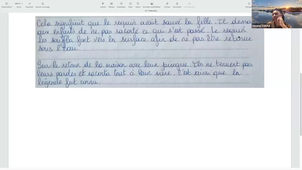 Cela signifiait que le requin avait sauvé la fille. Il demanda
aux enfants de ne pas raconter ce qui s'est passé. Le requin
les souffla fort vers la surface afin de ne pas être retenue
sous l'eau.
Sur le retour de la maison avec leur pirogue. Ils ne tenurent pas
leurs paroles et raconta tout à leur mère. C'est ainsi que la
légende fut connu.